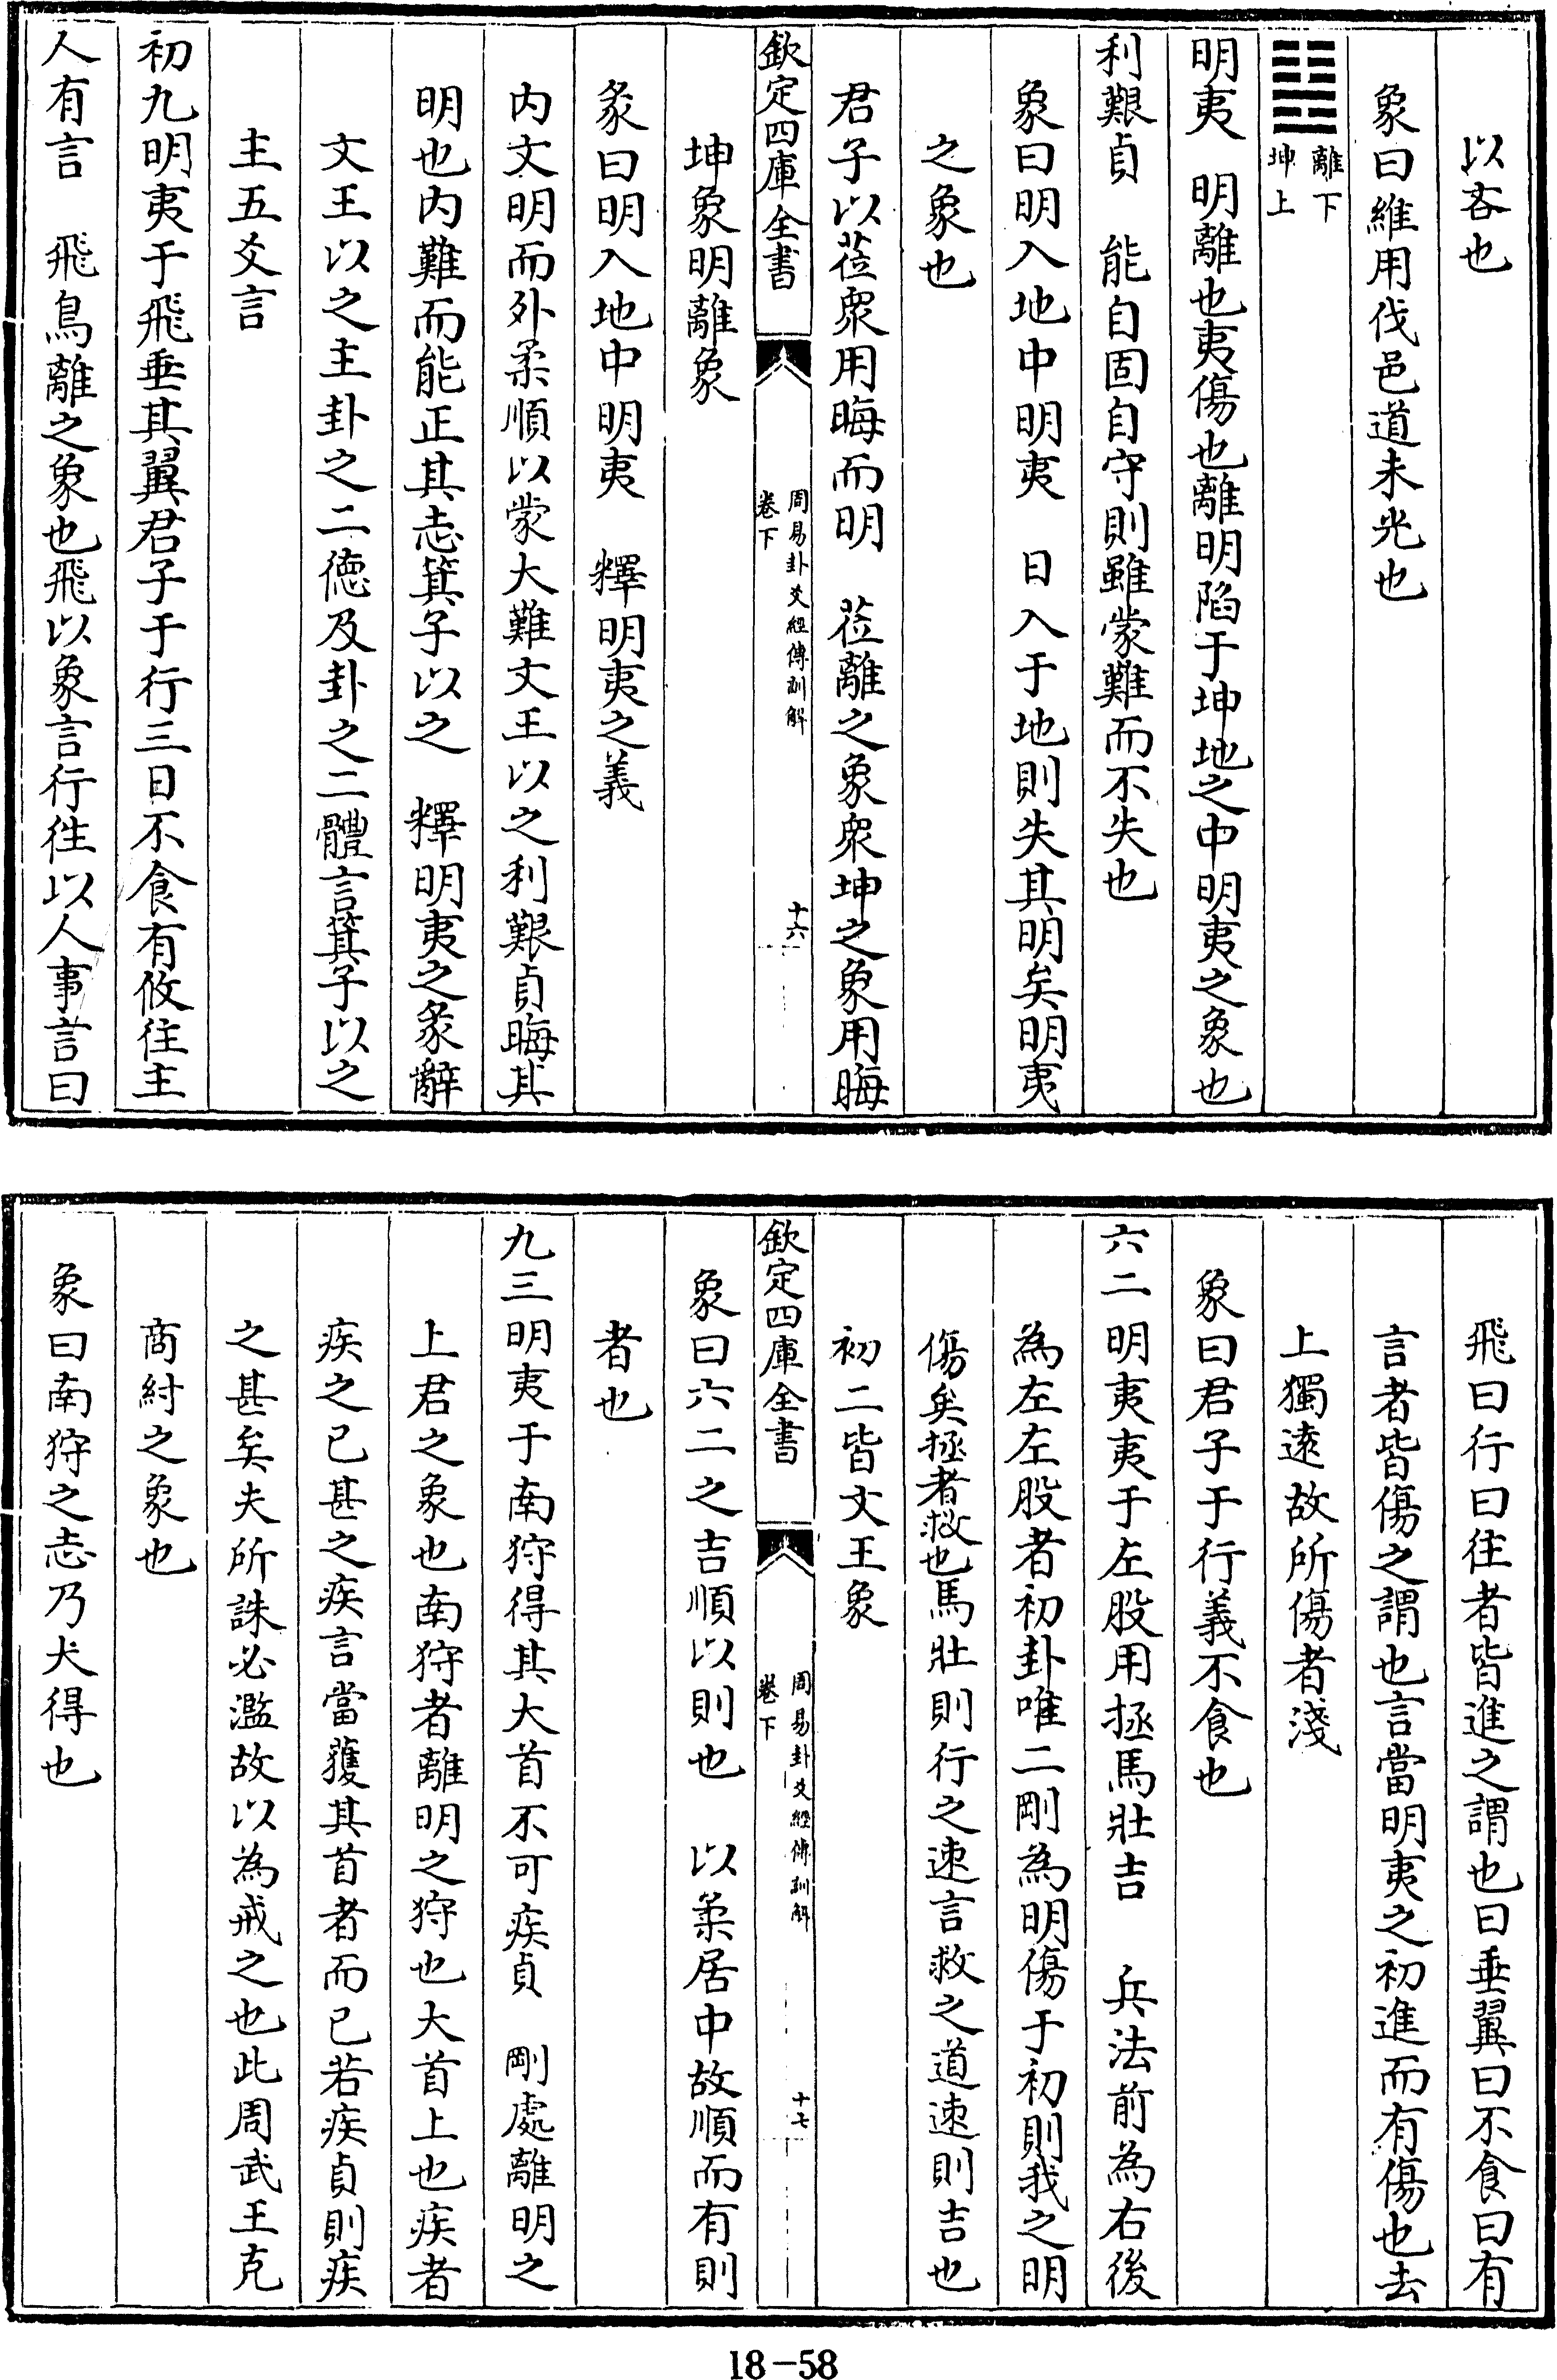 以吝也
象曰維用伐邑道未光也
離下
坤上
明夷　明離也夷傷也離明陷于坤地之中明夷之象也
利艱貞　能自固自守則雖蒙難而不失也
象曰明入地中明夷　日入于地則失其明矣明夷
之象也
君子以莅衆用晦而明　莅離之象衆坤之象用晦
欽定四庫全書
周易卦爻經傳訓解
卷下
十六
坤象明離象
彖曰明入地中明夷　釋明夷之義
内文明而外柔順以蒙大難文王以之利艱貞晦其
明也内難而能正其志箕子以之　釋明夷之彖辭
文王以之主卦之二德及卦之二體言箕子以之
主五爻言
初九明夷于飛垂其翼君子于行三日不食有攸往主
人有言　飛鳥離之象也飛以象言行往以人事言曰
飛曰行曰往者皆進之謂也曰垂翼曰不食曰有
言者皆傷之謂也言當明夷之初進而有傷也去
上獨遠故所傷者淺
象曰君子于行義不食也
六二明夷夷于左股用拯馬壯吉　兵法前為右後
為左左股者初卦唯二剛為明傷于初則我之明
傷矣拯者救也馬壯則行之速言救之道速則吉也
初二皆文王象
欽定四庫全書
周易卦爻經傳訓解
卷下
十七
象曰六二之吉順以則也　以柔居中故順而有則
者也
九三明夷于南狩得其大首不可疾貞　剛處離明之
上君之象也南狩者離明之狩也大首上也疾者
疾之已甚之疾言當獲其首者而已若疾貞則疾
之甚矣夫所誅必濫故以為戒之也此周武王克
商紂之象也
象曰南狩之志乃大得也
18-58